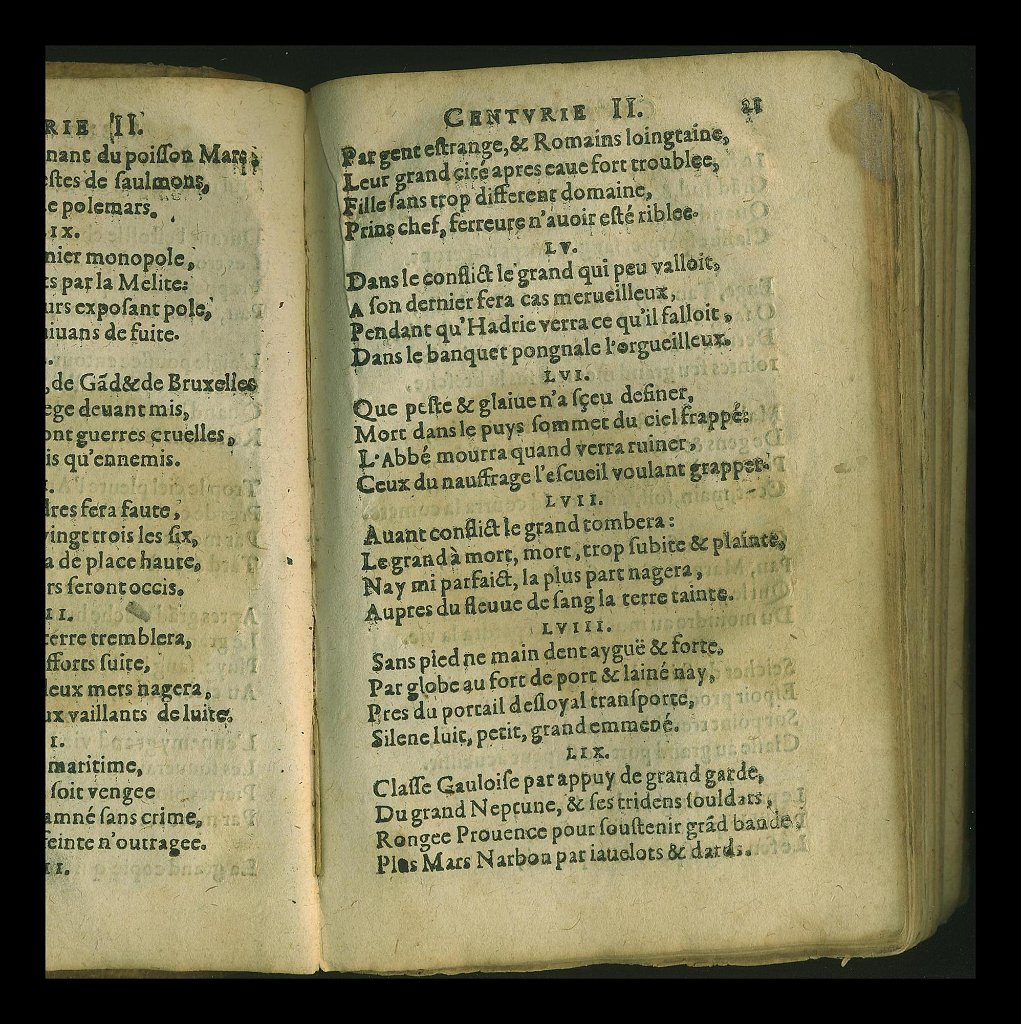 RIE II.
nant du poisson Mars,
estes de saulmons,
e polemars.
IX.
nier monopole,
ts par la Melite:
urs exposant pole,
iuans de fuite.
, de Gãd & de Bruxelles
ege deuant mis,
ont guerres cruelles,
is qu'ennemis.
dres fera faute,
vingt trois les six,
a de place haute,
rs seront occis.
II.
terre tremblera,
fforts suite,
eux mers nagera,
ux vaillants de luite.
I.
maritime,
soit vengee
amné sans crime,
feinte n'outragee.
II.
CENTVRIE II. 21
Par gent estrange, & Romains loingtaine,
Leur grand cité apres eaue fort troublee,
Fille sans trop different domaine,
Prins chef, ferreure n'auoir esté riblee.
LV.
Dans le conflict le grand qui peu valloit,
A son dernier fera cas merueilleux,
Pendant qu'Hadrie verra ce qu'il falloit,
Dans le banquet pongnale l'orgueilleux.
LVI.
Que peste & glaiue n'a sçeu definer,
Mort dans le puys sommet du ciel frappé:
L'Abbé mourra quand verra ruiner,
Ceux du nauffrage l'escueil voulant grapper.
LVII.
Auant conflict le grand tombera:
Le grand à mort, mort, trop subite & plainte,
Nay mi parfaict, la plus part nagera,
Aupres du fleuue de sang la terre tainte.
LVIII.
Sans pied ne main dent ayguë & forte,
Par globe au fort de port & lainé nay,
Pres du portail desloyal transporte,
Silene luit, petit, grand emmené.
LIX.
Classe Gauloise par appuy de grand garde,
Du grand Neptune, & ses tridens souldars,
Rongee Prouence pour soustenir grãd bande,
Plus Mars Narbon par iauelots & dards.